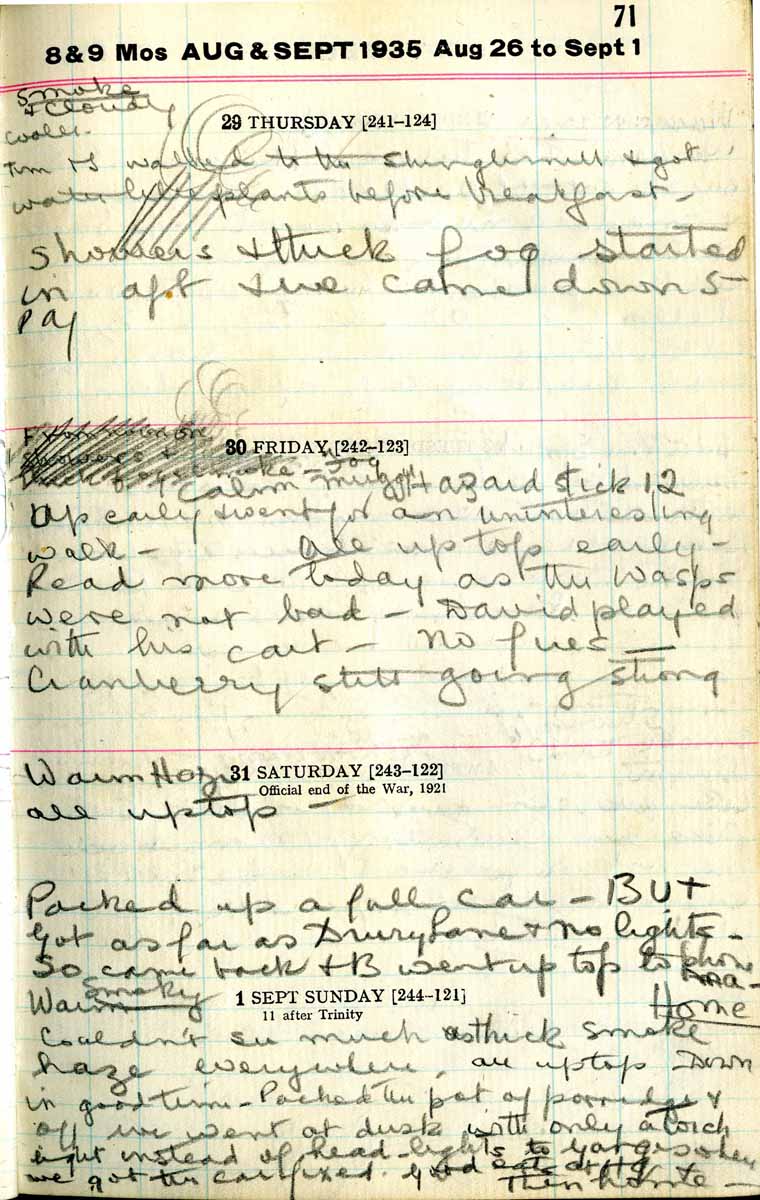 71
8 & 9 Mos AUG & SEPT 1935 Aug 26 to Sept 1
Smoke
& Cloudy
cooler.
29 THURSDAY [241–124]
Tim & I walked to the shinglemill & got
water plants before breakfast –
Showers & thick fog started
in aft & we came down 5
30 FRIDAY [242–123]
Showers &
smoke – Fog
Calm muggy Hazard stick 12
Up early & went for an uninteresting
walk – All up top early –
Read more today as the wasps
were not bad – David played
with his cart – No fires –
Cranberry still going strong
Warm Hazy 31 SATURDAY [243–122]
Official end of the War, 1921
all up top –
Packed up a full car – BUT
Got as far as Drury Lane & no lights –
So came back & B went up top to phone
Warm Smoky 1 SEPT SUNDAY [244–121]
Home
11 after Trinity
Couldn't see much as thick smoke
haze everywhere, all up top Down
in good time – Packed the pot of porridge &
off we went at dusk with only a torch
light instead of head-lights to when
we got the car fixed. Good eats at
Then home –